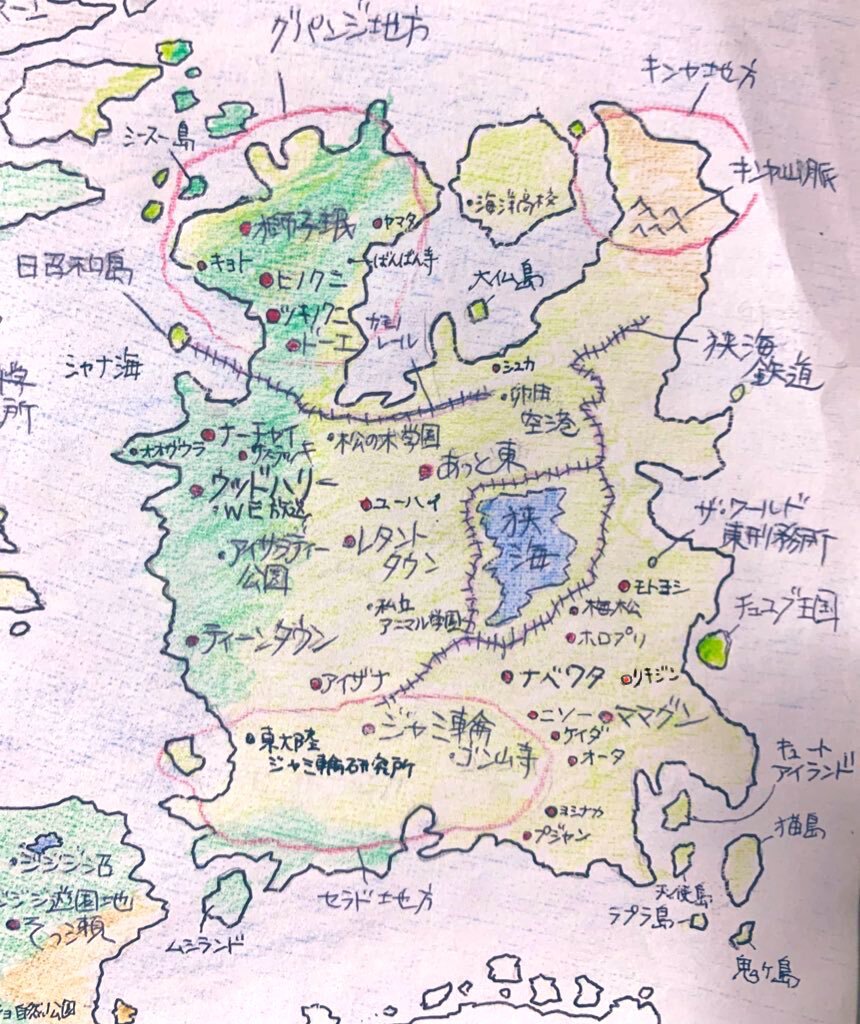 グリパンジ地方
キンヤ地方
シースー島
キンヤ山脈
海洋高校
獅子珉
ヤマタ
ばんばん寺
キョト
ヒノクニ
日召和島
大仏島
ツキノクニ
ドーエ
レール
シャナ海
シュカ
狭海
鉄道
卵田
空港
ナーエャイ
松の木学園
オオヴウラ
あっと東
ウッドハリー
WE放送
ユーハイ
狭
海
ザ・ワールド
東刑務所
レタント
タウン
アイサラティー
公園
モトヨシ
梅松
私立
アニマル学園
チュウブ王国
ホロプリ
ティーンタウン
ナベワタ
リキジン
アイザナ
ジャミ輪
ニソー
ママグン
ケイダ
東大陸
ジャミ輪研究所
ゴン山寺
オータ
キュート
アイランド
ヨシナカ
プジャン
猫島
ジジジ沼
セラド地方
天使島
ラプラ島
ムシランド
鬼ヶ島